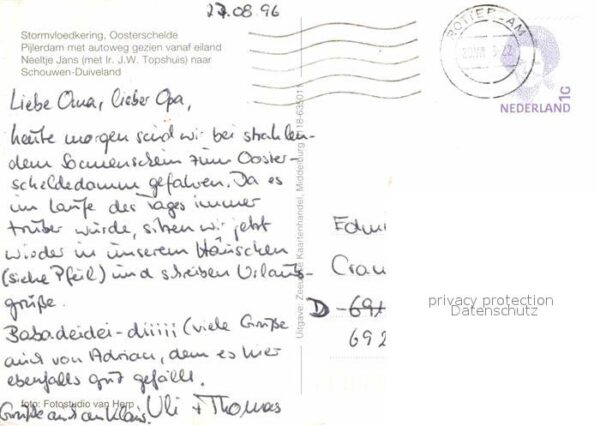 27.08.96
Stormvloedkering, Oosterschelde
Pijlerdam met autoweg gezien vanaf eiland
Neeltje Jans (met Ir. J.W. Topshuis) naar
Schouwen-Duiveland
ROTTERDAM
NEDERLAND
Liebe Oma, lieber Opa,
heute morgen sind wir bei strahlen-
dem Sonnenschein zum Ooster-
scheldedamm gefahren. Da es
im Laufe des Tages immer
trüber wurde, sitzen wir jetzt
wieder in unserem Häuschen
(siehe Pfeil) und schreiben Urlaubs-
grüße.
Babadeidei-diiiii (viele Grüße
auch von Adrian, dem es hier
ebenfalls gut gefällt.
Uli + Thomas
Grüße auch an Klaus.
foto: Fotostudio van Herp
Uitgave: Zeeuwse Kaartenhandel, Middelburg
Edmu
Crau
D-69
692
privacy protection
Datenschutz